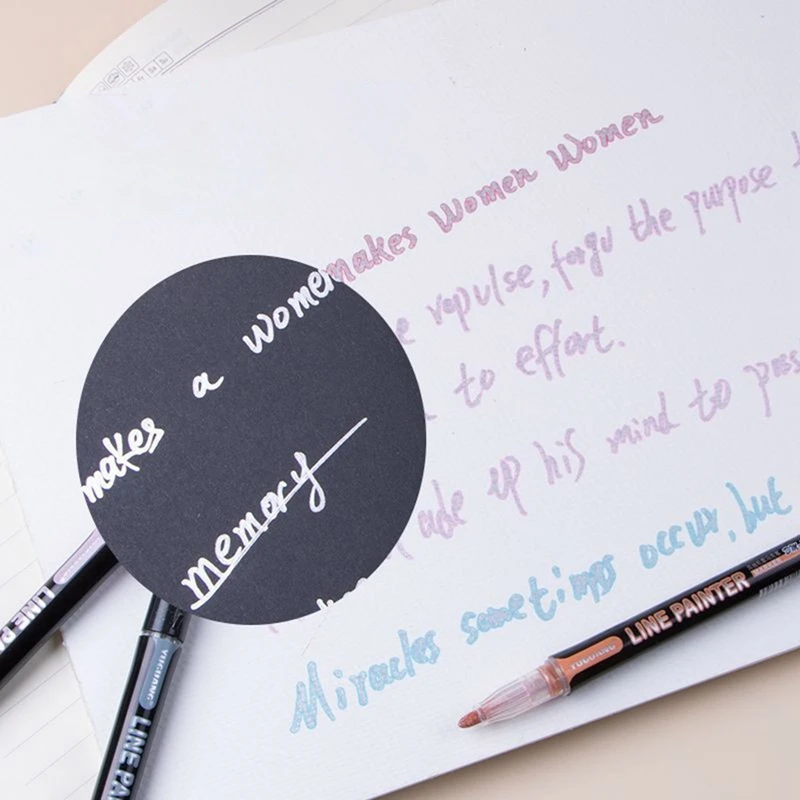 makes Women Women
repulse, forgu the purpose
to effort.
up his mind to
Miracles sometimes occur, but
makes a women
memory
LINE PAINTER
YUCHANG
LINE PA
LINE PA